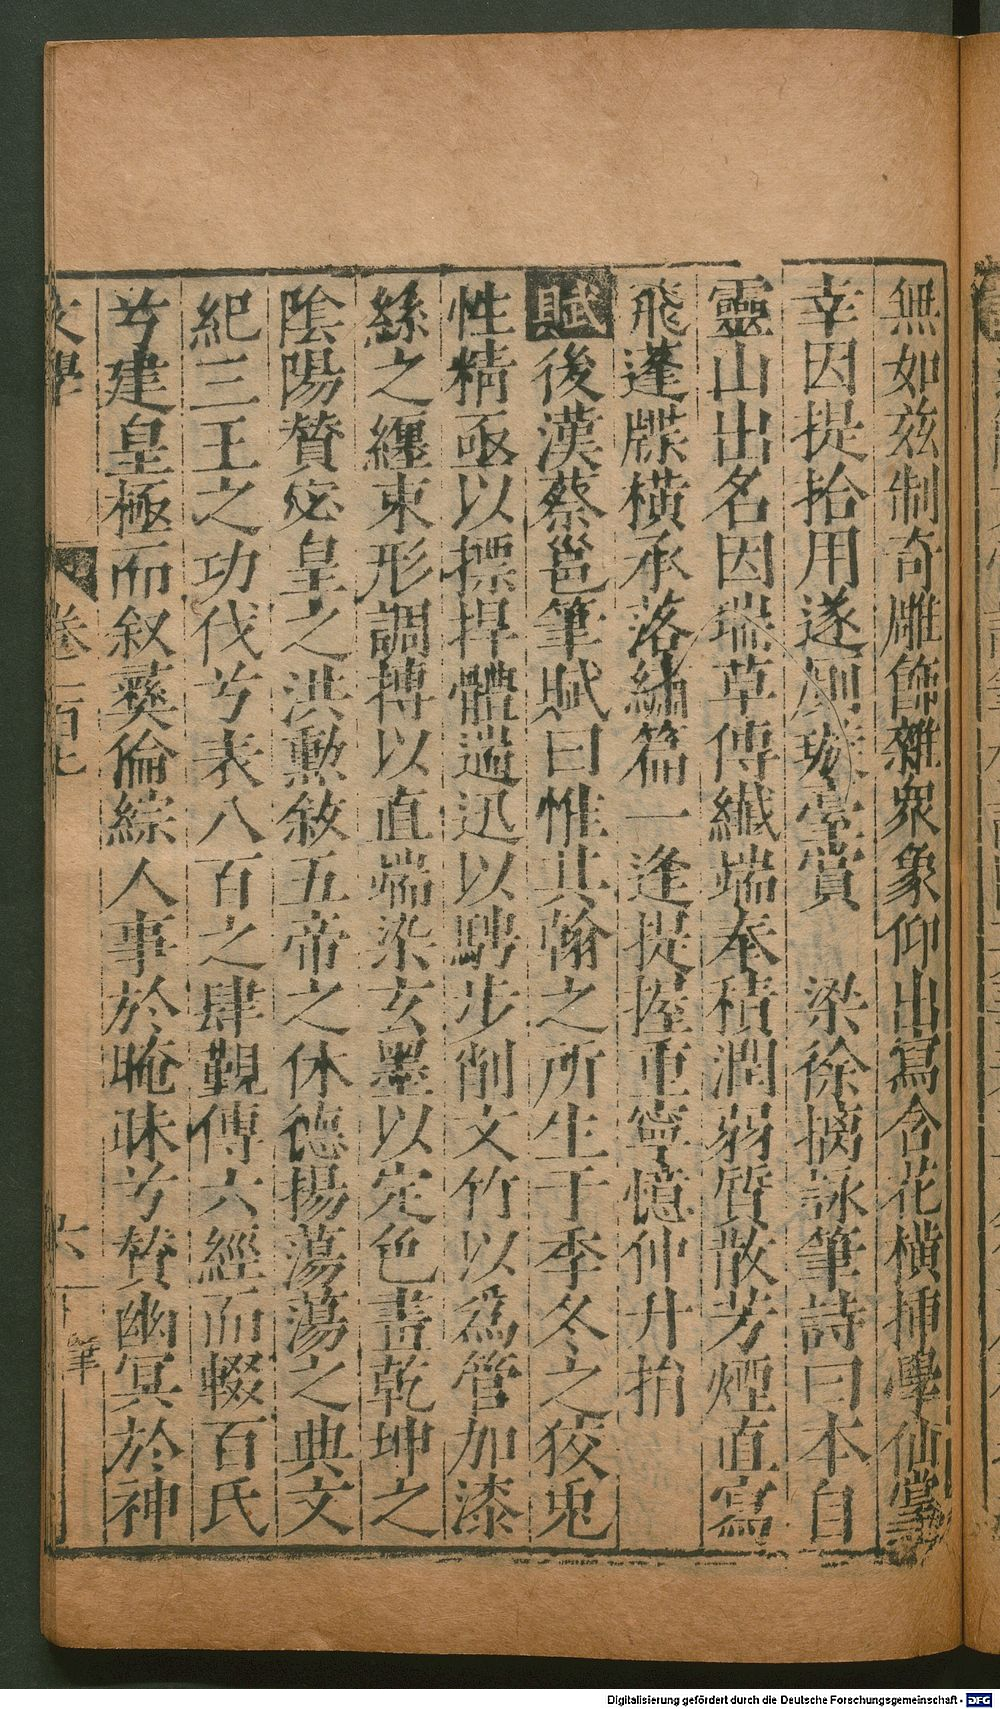 無如茲制奇雕飾雜眾象仰出寫含花橫揷學仙掌
幸因提拾用遂廁璇臺賞　梁徐摛詠筆詩曰本自
靈山出名因瑞草傳纖端奉積潤弱質散芳煙直寫
飛蓬牒橫承落繡篇一逢提握重寧憶仲升捐
賦後漢蔡邕筆賦曰惟其翰之所生于季冬之狡兎
性精亟以摽捍體遄迅以騁步削文竹以爲管加漆
絲之纏束形調搏以直端染玄墨以定色畫乾坤之
陰陽贊宓皇之洪勲敘五帝之休德揚蕩蕩之典文
紀三王之功伐兮表八百之肆覲傳六經而輟百氏
兮建皇極而叙彞倫綜人事於晻昧兮贊幽冥於神
文學
卷二百七
六
筆
Digitalisierung gefördert durch die Deutsche Forschungsgemeinschaft - DFG